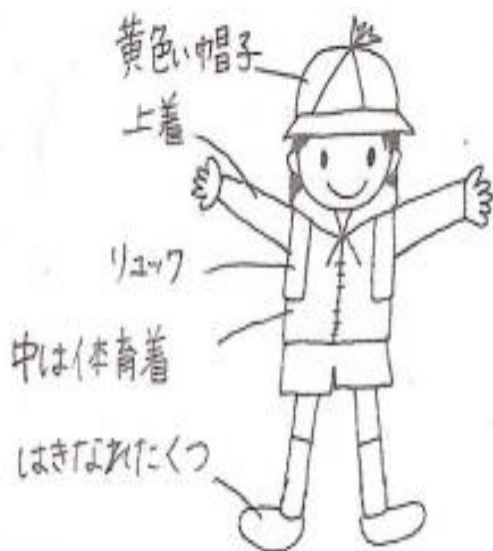 黄色い帽子
上着
リュック
中は体育着
はきなれたくつ